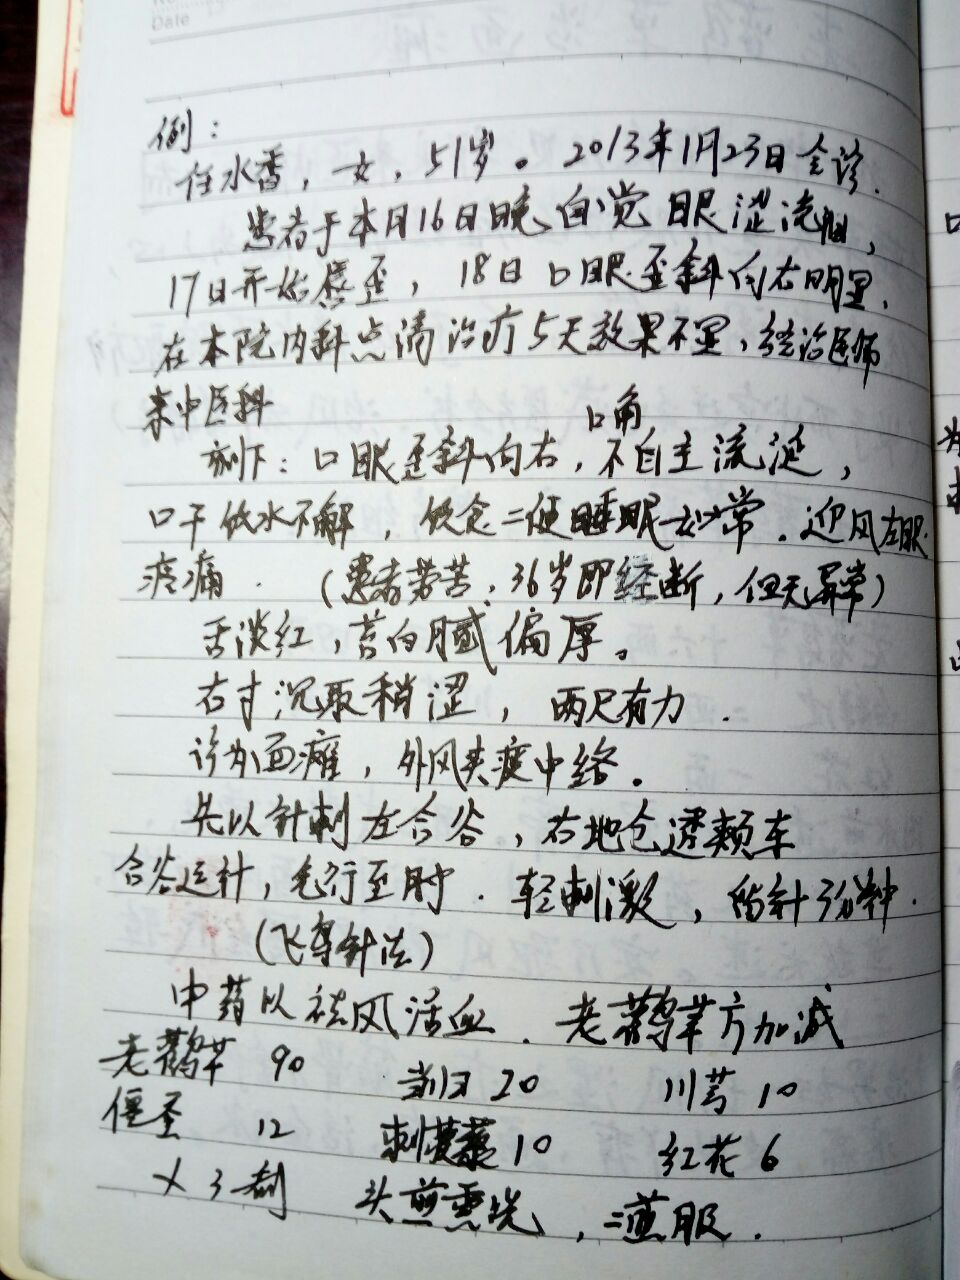 Date
例：
任水香，女，51岁。2013年1月23日会诊.
患者于本月16日晚自觉眼涩流泪，
17日开始感歪，18日口眼歪斜向右明显，
在本院内科点滴治疗5天效果不显，经治医师
来中医科
刻下：口眼歪斜向右，口角不自主流涎，
口干饮水不解，饮食二便睡眠如常.迎风左眼
疼痛.（患者劳苦，36岁即经断，但无异常）
舌淡红，苔白腻偏厚。
右寸沉取稍涩，两尺有力.
诊为面瘫，外风夹痰中络。
先以针刺左合谷，右地仓透颊车
合谷运针，气行至肘.轻刺激，留针3分钟.
（飞针法）
中药以祛风活血.老鹳草方加减
老鹳草 90 当归 20 川芎 10
僵蚕 12 刺蒺藜 10 红花 6
×3剂 头煎熏洗，二煎服.